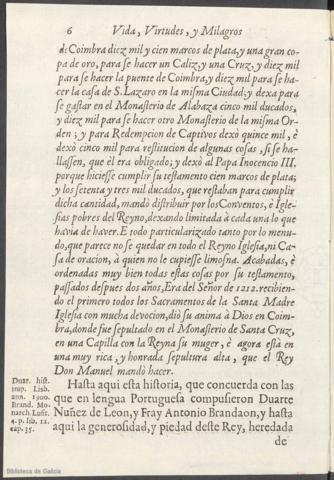 6 Vida, Virtudes, y Milagros
de Coimbra diez mil y cien marcos de plata, y una gran co-
pa de oro, para se hacer un Caliz, y una Cruz, y diez mil
para se hacer la puente de Coimbra, y diez mil para se ha-
cer la casa de S. Lazaro en la misma Ciudad; y dexa para
se gastar en el Monasterio de Alabaza cinco mil ducados,
y diez mil para se hacer otro Monasterio de la misma Or-
den; y para Redempcion de Captivos dexò quince mil, è
dexò cinco mil para restitucion de algunas cosas, si se ha-
llassen, que èl era obligado; y dexò al Papa Inocencio III,
porque hiciesse cumplir su testamento cien marcos de plata;
y los setenta y tres mil ducados, que restaban para cumplir
dicha cantidad, mandò distribuir por los Conventos, è Igle-
sias pobres del Reyno, dexando limitada à cada una lo que
havia de haver. E todo particularizado tanto por lo menu-
do, que parece no se quedar en todo el Reyno Iglesia, ni Ca-
sa de oracion, à quien no le cupiesse limosna. Acabadas, è
ordenadas muy bien todas estas cosas por su testamento,
passados despues dos años, Era del Señor de 1212. recibien-
do el primero todos los Sacramentos de la Santa Madre
Iglesia con mucha devocion, diò su anima à Dios en Coim-
bra, donde fue sepultado en el Monasterio de Santa Cruz,
en una Capilla con la Reyna su muger, è agora està en
una muy rica, y honrada sepultura alta, que el Rey
Don Manuel mandò hacer.
Duar. hist.
imp. Lisb.
ann. 1900.
Brand. Mo-
narch. Lusit.
4. p. lib. 12.
cap. 35.
Hasta aqui esta historia, que concuerda con las
que en lengua Portuguesa compusieron Duarte
Nuñez de Leon, y Fray Antonio Brandaon, y hasta
aqui la generosidad, y piedad deste Rey, heredada
de
Biblioteca de Galicia